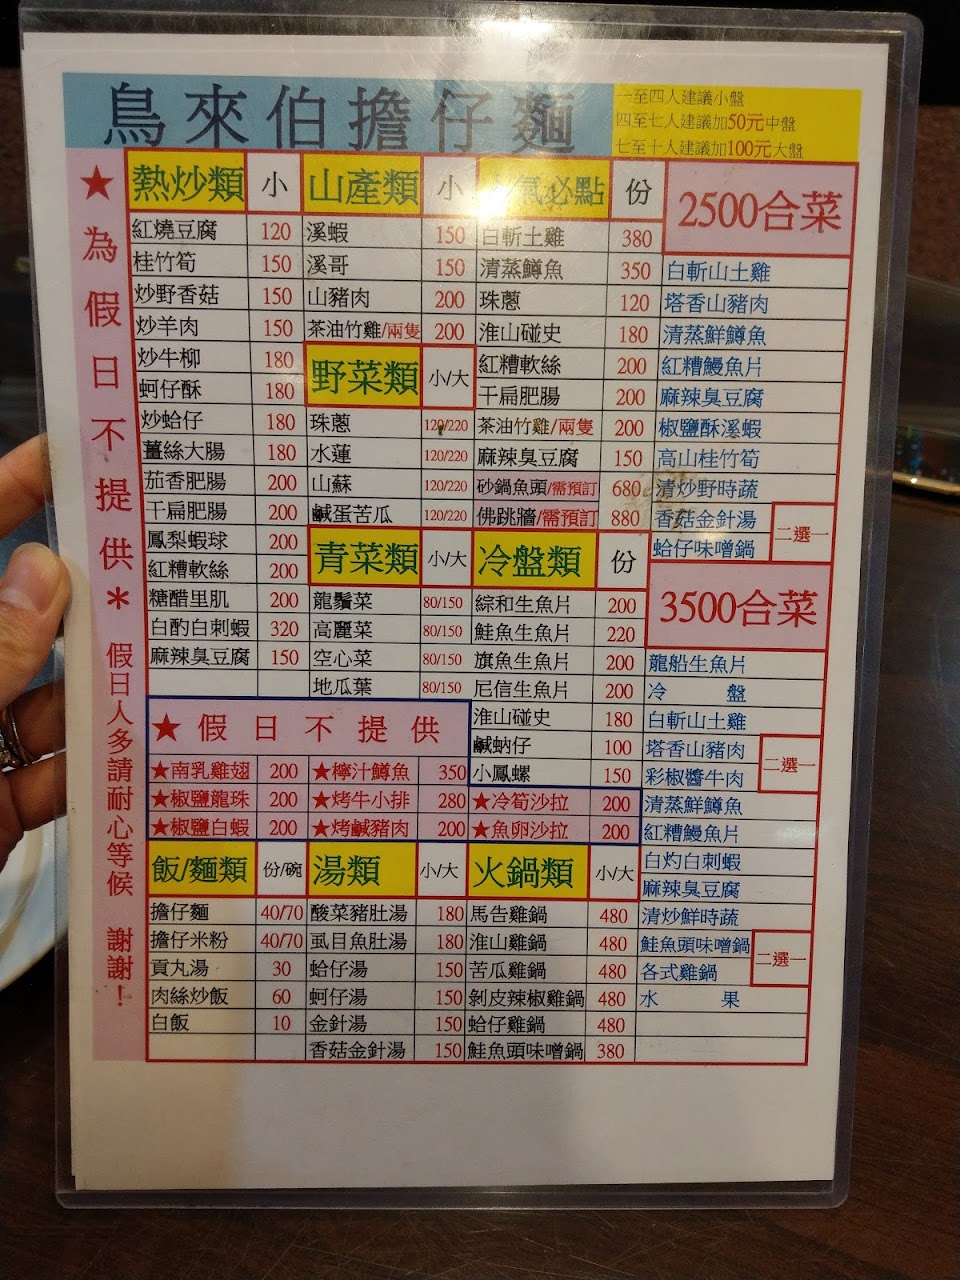 烏來伯擔仔麵
一至四人建議小盤
四至七人建議加50元中盤
七至十人建議加100元大盤
★為假日不提供* 假日人多請耐心等候 謝謝!
熱炒類 小
紅燒豆腐 120
桂竹筍 150
炒野香菇 150
炒羊肉 150
炒牛柳 180
蚵仔酥 180
炒蛤仔 180
薑絲大腸 180
茄香肥腸 200
干扁肥腸 200
鳳梨蝦球 200
紅糟軟絲 200
糖醋里肌 200
白酌白刺蝦 320
麻辣臭豆腐 150
山產類 小
溪蝦 150
溪哥 150
山豬肉 200
茶油竹雞/兩隻 200
野菜類 小/大
珠蔥 120/220
水蓮 120/220
山蘇 120/220
鹹蛋苦瓜 120/220
青菜類 小/大
龍鬚菜 80/150
高麗菜 80/150
空心菜 80/150
地瓜葉 80/150
氣必點 份
白斬土雞 380
清蒸鱒魚 350
珠蔥 120
淮山碰史 180
紅糟軟絲 200
干扁肥腸 200
茶油竹雞/兩隻 200
麻辣臭豆腐 150
砂鍋魚頭/需預訂 680
佛跳牆/需預訂 880
冷盤類 份
綜和生魚片 200
鮭魚生魚片 220
旗魚生魚片 200
尼信生魚片 200
淮山碰史 180
鹹蚋仔 100
小鳳螺 150
★假日不提供
★南乳雞翅 200 ★檸汁鱒魚 350
★椒鹽龍珠 200 ★烤牛小排 280 ★冷筍沙拉 200
★椒鹽白蝦 200 ★烤鹹豬肉 200 ★魚卵沙拉 200
飯/麵類 份/碗
擔仔麵 40/70
擔仔米粉 40/70
貢丸湯 30
肉絲炒飯 60
白飯 10
湯類 小/大
酸菜豬肚湯 180
虱目魚肚湯 180
蛤仔湯 150
蚵仔湯 150
金針湯 150
香菇金針湯 150
火鍋類 小/大
馬告雞鍋 480
淮山雞鍋 480
苦瓜雞鍋 480
剝皮辣椒雞鍋 480
蛤仔雞鍋 480
鮭魚頭味噌鍋 380
2500合菜
白斬山土雞
塔香山豬肉
清蒸鮮鱒魚
紅糟鰻魚片
麻辣臭豆腐
椒鹽酥溪蝦
高山桂竹筍
清炒野時蔬
香菇金針湯
蛤仔味噌鍋
二選一
3500合菜
龍船生魚片
冷 盤
白斬山土雞
塔香山豬肉
彩椒醬牛肉
二選一
清蒸鮮鱒魚
紅糟鰻魚片
白灼白刺蝦
麻辣臭豆腐
清炒鮮時蔬
鮭魚頭味噌鍋
各式雞鍋
二選一
水 果